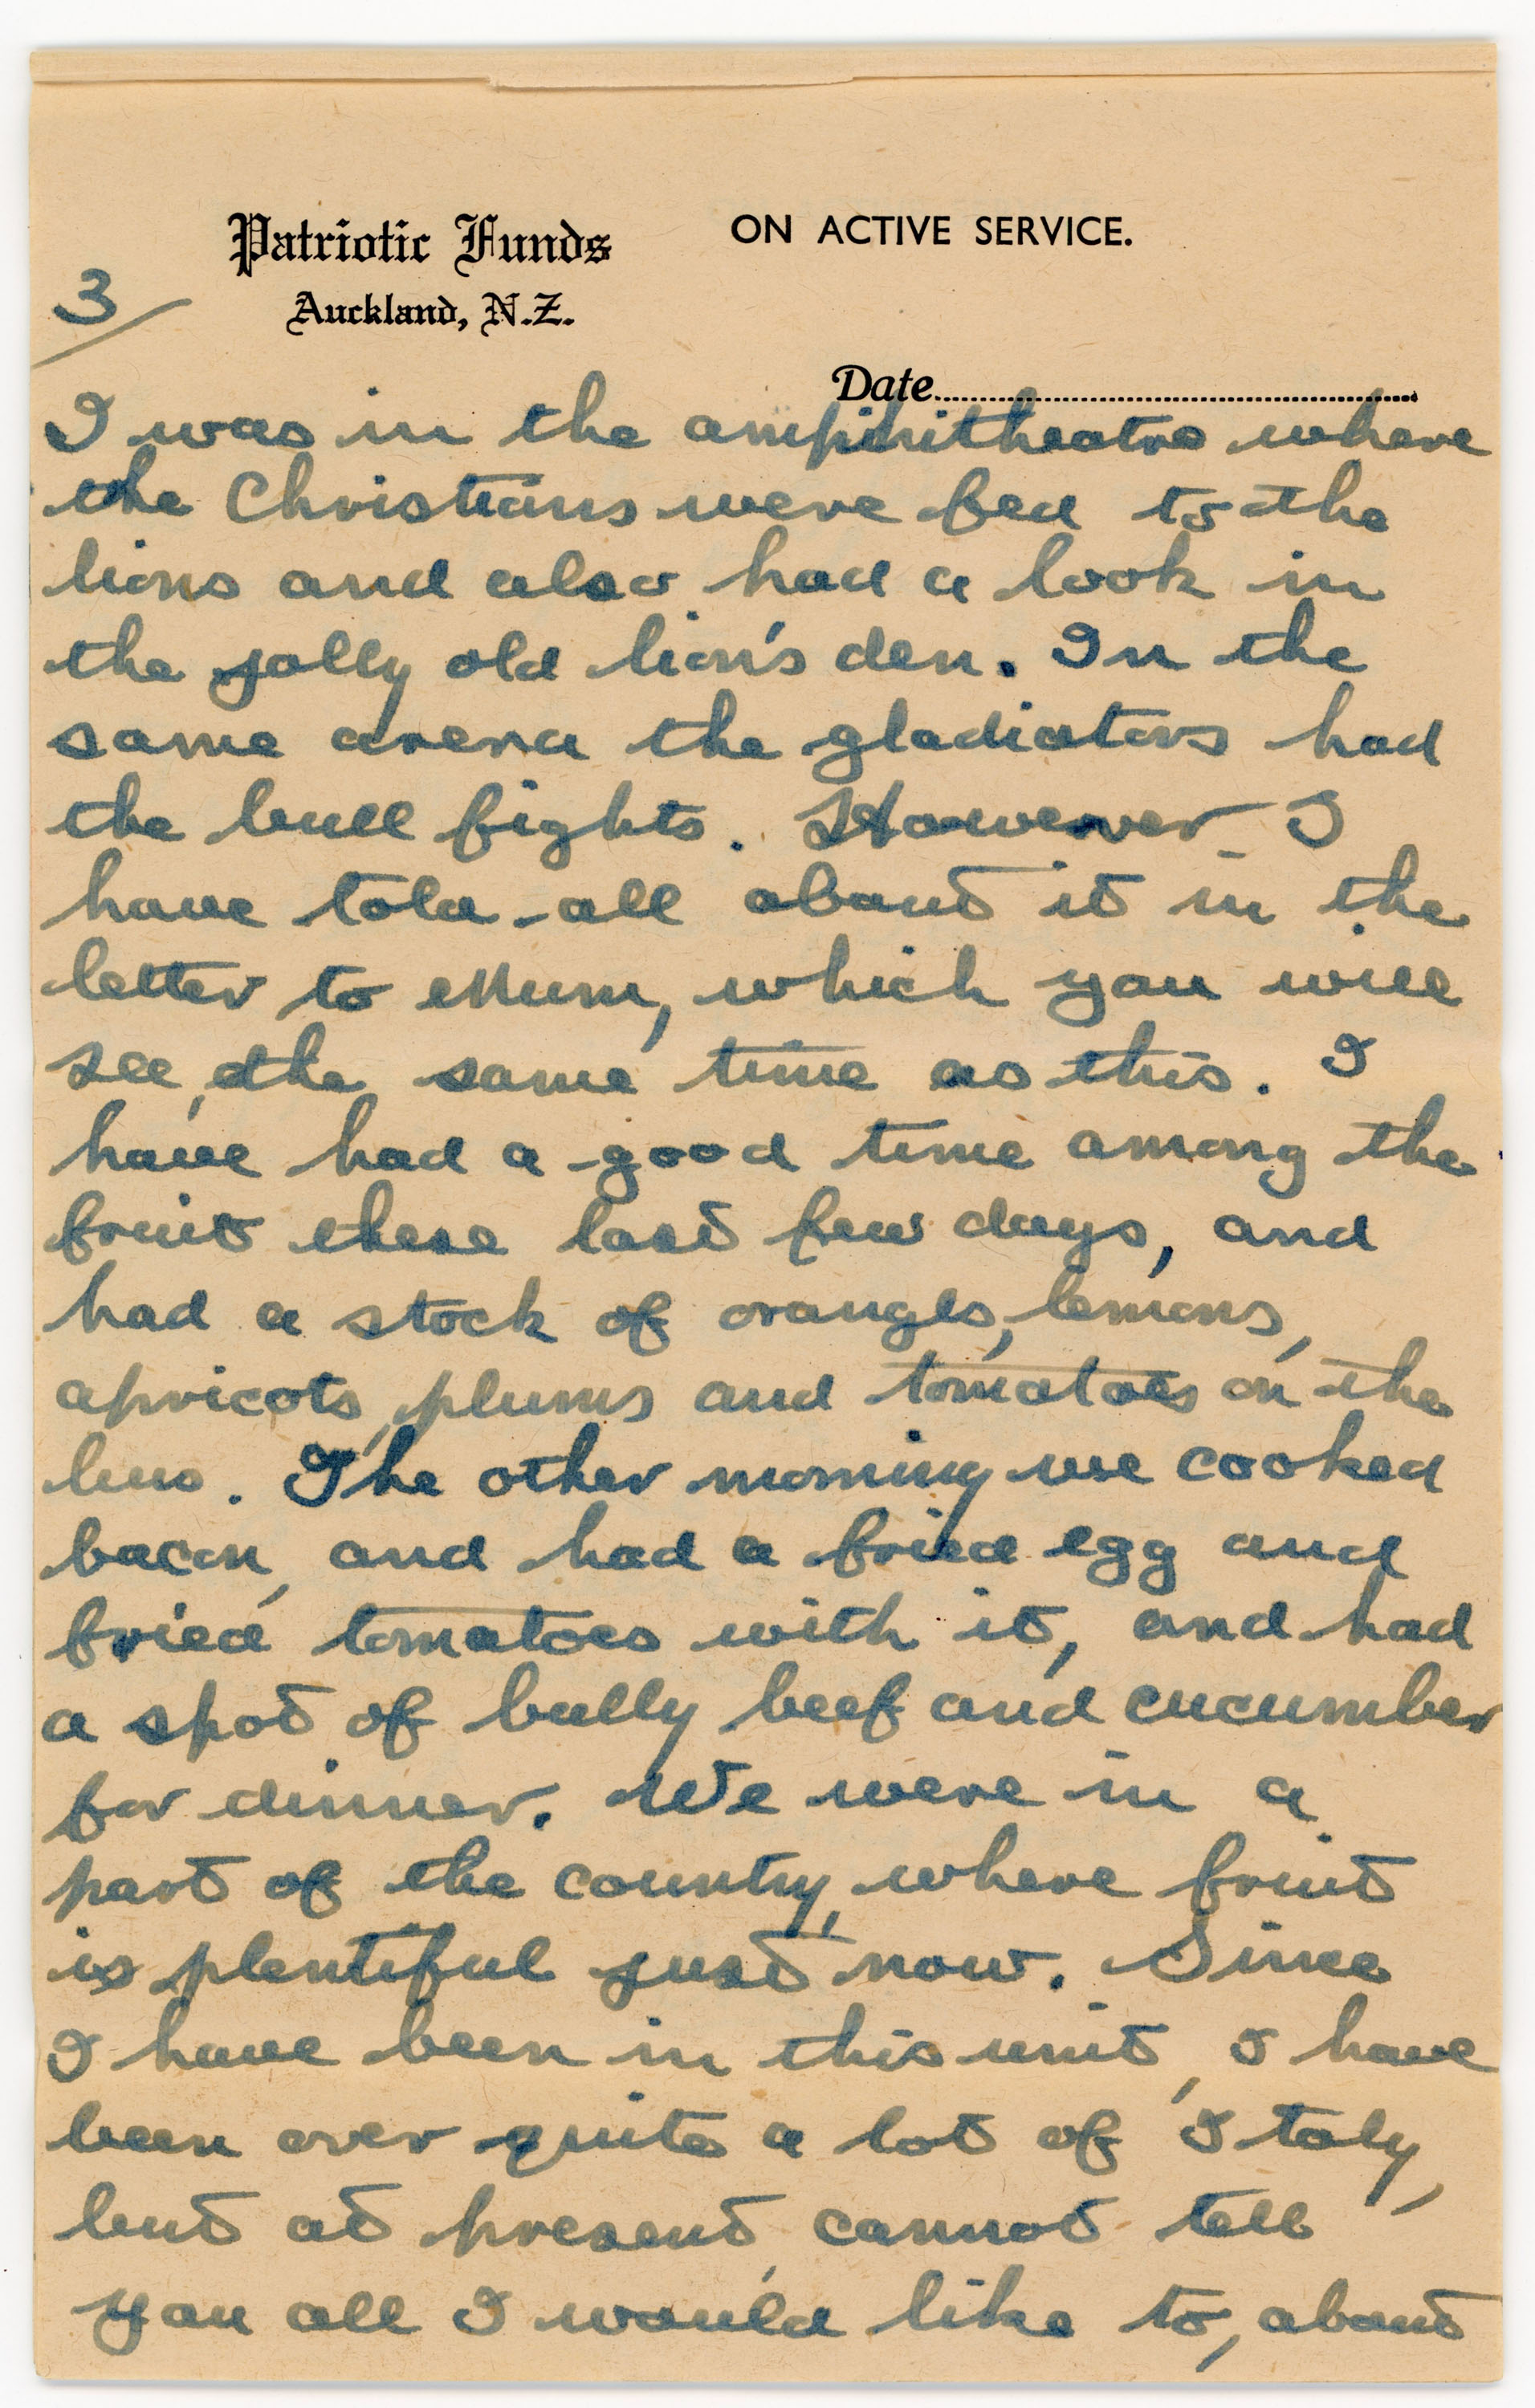 Patriotic Funds ON ACTIVE SERVICE.
Auckland, N.Z.
3/
Date
I was in the amphitheatre where
the Christians were fed to the
lions and also had a look in
the jolly old lion's den. In the
same arena the gladiators had
the bull fights. However I
have told all about it in the
letter to Mum, which you will
see, the same time as this. I
have had a good time among the
fruit these last few days, and
had a stock of oranges, lemons,
apricots, plums and tomatoes on the
bus. The other morning we cooked
bacon, and had a fried egg and
fried tomatoes with it, and had
a spot of bully beef and cucumber
for dinner. We were in a
part of the country, where fruit
is plentiful just now. Since
I have been in this unit, I have
been over quite a lot of Italy,
but at present, cannot tell
you all I would like to, about